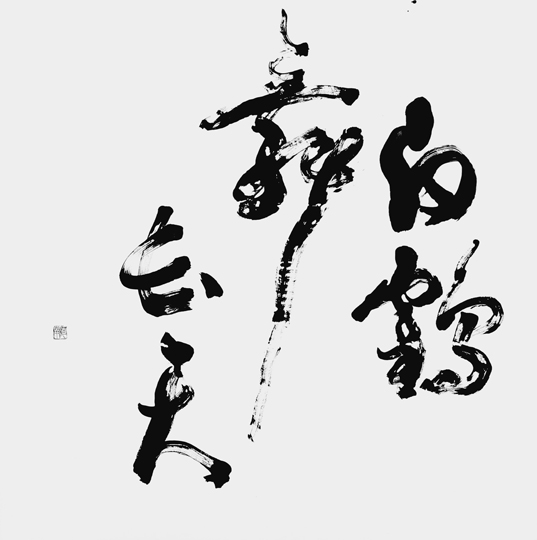 白鶴
舞
長天